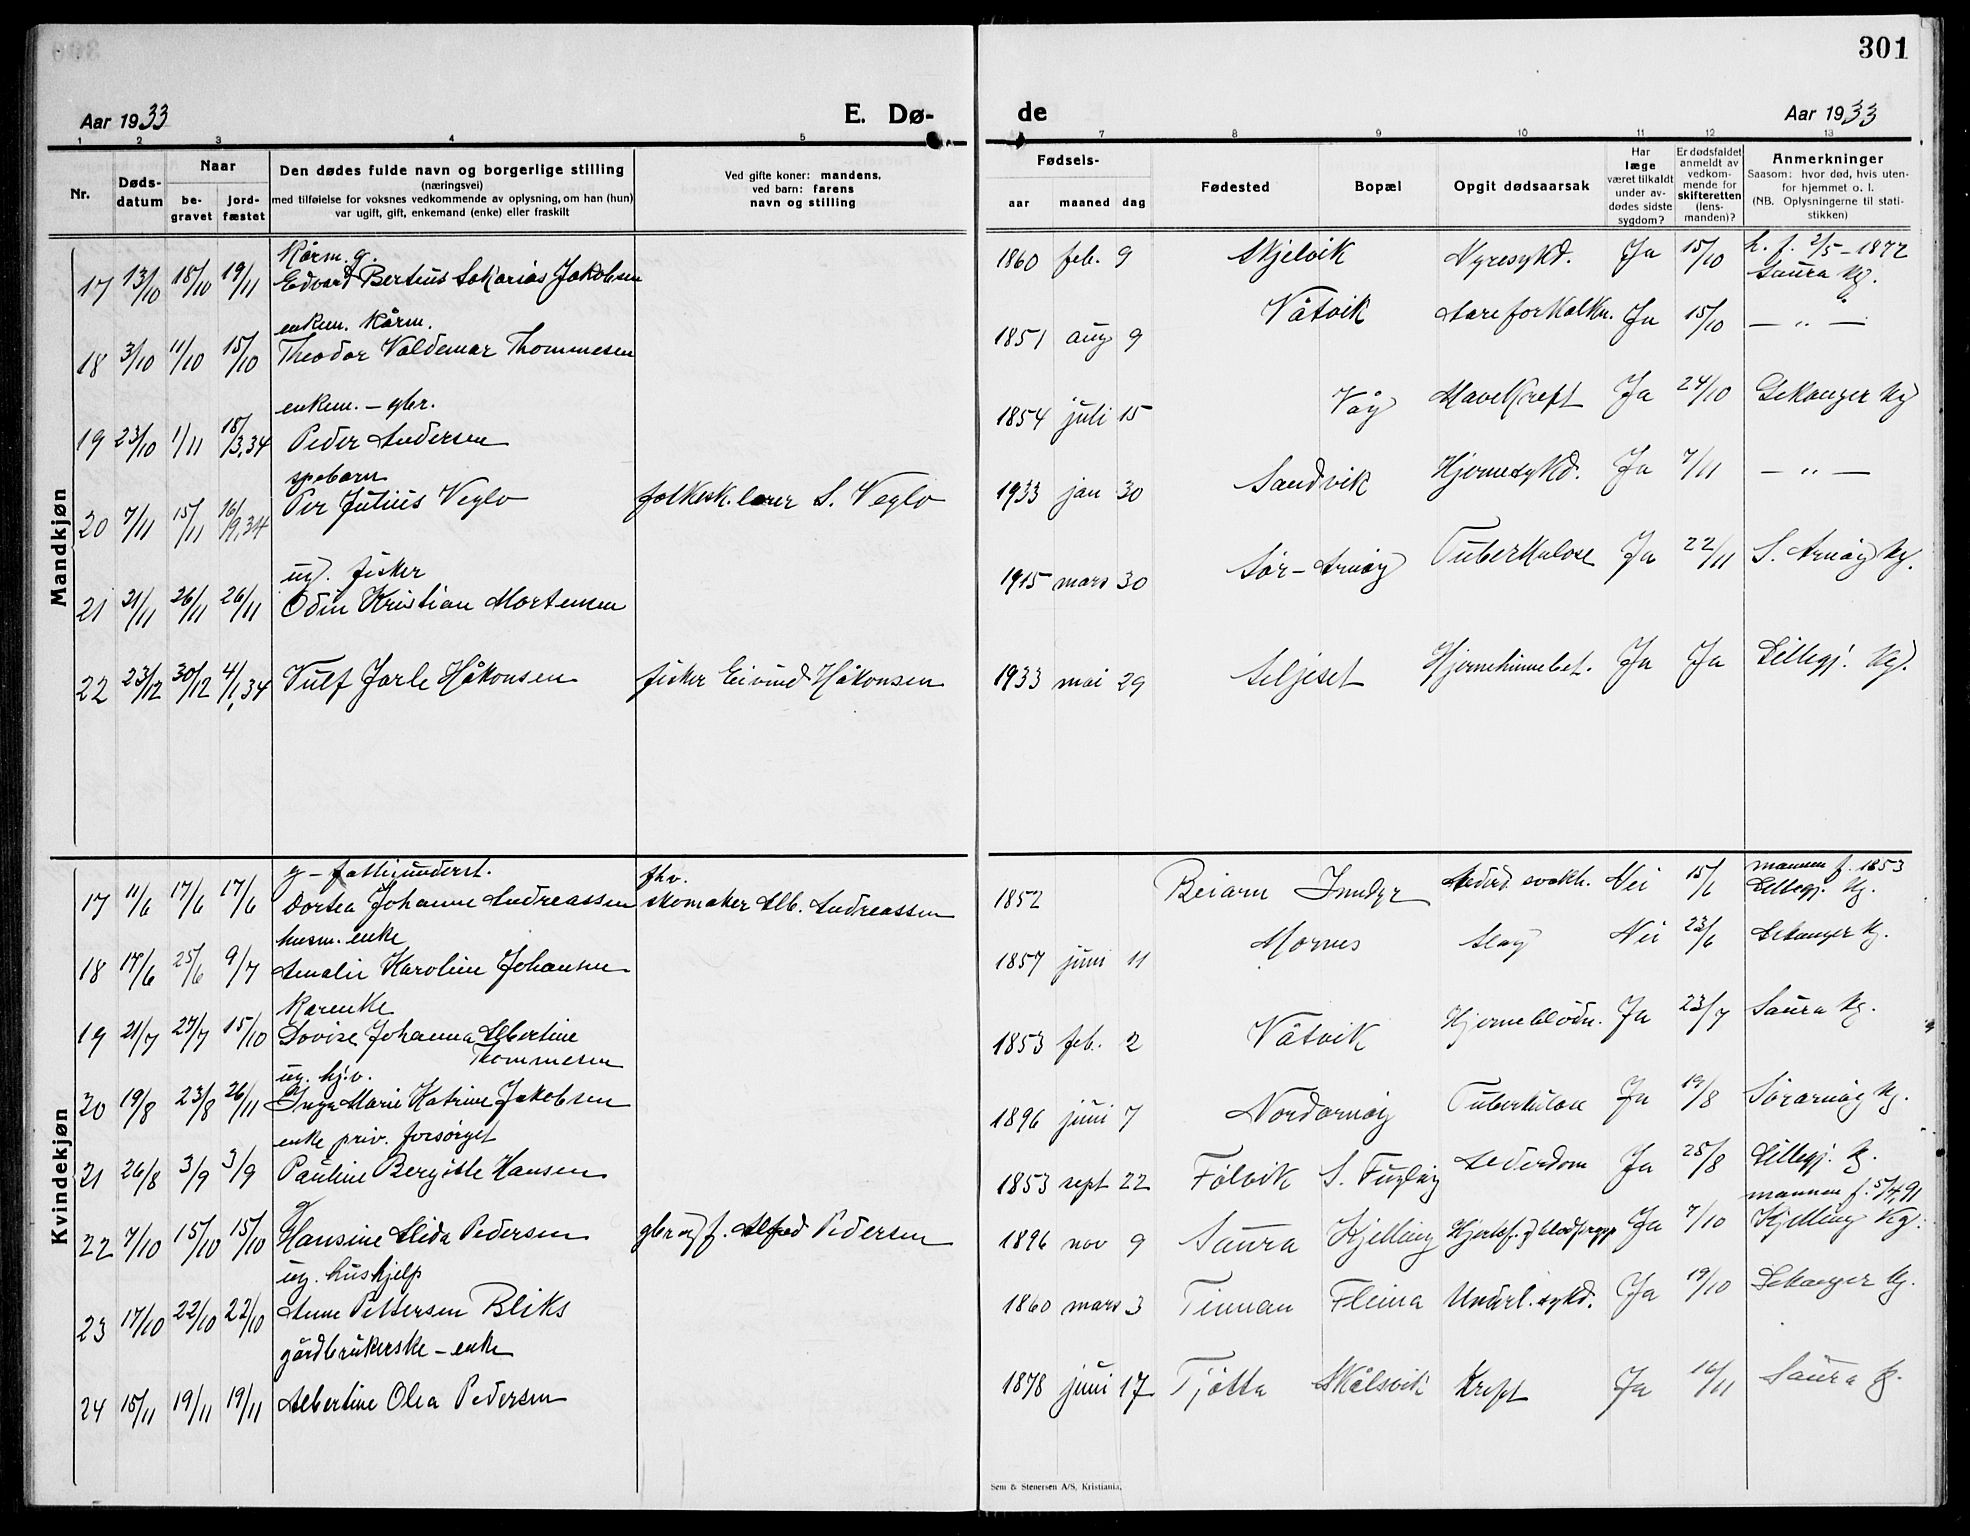 301
Aar 1933 E. Dø- de Aar 1933
1 2 3 4 5 7 8 9 10 11 12 13
Nr.
Døds-
datum
Naar
be-
gravet
jord-
fæstet
Den dødes fulde navn og borgerlige stilling
(næringsvei)
med tilføielse for voksnes vedkommende av oplysning, om han (hun)
var ugift, gift, enkemand (enke) eller fraskilt
Ved gifte koner: mandens,
ved barn: farens
navn og stilling
Fødsels-
aar maaned dag
Fødested
Bopæl
Opgit dødsaarsak
Har
læge
været tilkaldt
under av-
dødes sidste
sygdom?
Er dødsfaldet
anmeldt av
vedkom-
mende for
skifteretten
(lens-
manden)?
Anmerkninger
Saasom: hvor død, hvis uten-
for hjemmet o. l.
(NB. Oplysningerne til stati-
stikken)
Mandkjøn
Kårm. g.
17 13/10 18/10 19/11 Edvard Bertius Sakarias Jakobsen 1860 feb. 9 Skjelvik Nyresykd. Ja 15/10 h. f. 2/5-1872
Saura kg.
enkem. kårm.
18 3/10 11/10 15/10 Theodor Valdemar Thommesen 1851 aug 9 Våtvik Aareforkalkn. Ja 15/10 — " —
enkem. – gbr.
19 23/10 1/11 18/3.34 Peder Andersen 1854 juli 15 Våg Mavekreft Ja 24/10 Lekanger kg
spebarn
20 7/11 15/11 16/9.34 Per Julius Veglo folkesk. lærer S. Veglo 1933 jan 30 Sandvik Hjernesykd. Ja 7/11 — " —
ug. fisker
21 21/11 26/11 26/11 Odin Kristian Mortensen 1915 mars 30 Sør-Arnøy Tuberkulose Ja 22/11 S. Arnøy kg.
22 23/12 30/12 4/1.34 Vulf Jarle Håkonsen fisker Eivind Håkonsen 1933 mai 29 Seljeset Hjernehinnebet. Ja Ja Lillegj. kg.
Kvindekjøn
g – fattigunderst. fhv. mannen f. 1853
17 11/6 17/6 17/6 Dortea Johanne Andreassen skomaker Alb. Andreassen 1852 Beiarn Inndyr Alderd. svakh. Nei 15/6 Lillegj. kg.
husm. enke
18 17/6 25/6 9/7 Amalie Karoline Johansen 1857 juni 11 Mornes Slåg Nei 23/6 Lekanger kg.
Kårenke
19 21/7 27/7 15/10 Lovise Johanna Albertine
Thommesen 1853 feb. 2 Våtvik Hjerneblødn. Ja 23/7 Saura kg.
ug. hj.v.
20 19/8 23/8 26/11 Inga Marie Katrine Jakobsen 1896 juni 7 Nordarnøy Tuberkulose Ja 19/8 Sørarnøy kg.
enke priv. forsørget
21 26/8 3/9 3/9 Pauline Bergitte Hansen 1853 sept 22 Følvik S. Fugløy Alderdom Ja 25/8 Lillegj. kg.
g mannen f. 5/4 91
22 7/10 15/10 15/10 Hansine Alida Pedersen gbr og f. Alfred Pedersen 1896 nov 9 Saura Kjelling Hjertef. Blodpropp Ja 7/10 Kjelling kg.
ug. hushjelp
23 17/10 22/10 22/10 Anne Pettersen Bliks 1860 mars 3 Tinnan Fleina Underl. sykd. Ja 19/10 Lekanger kg.
gårdbrukerske – enke
24 15/11 19/11 19/11 Albertine Olea Pedersen 1878 juni 17 Tjøtta Skålsvik Kreft Ja 16/11 Saura kg.
Sem & Stenersen A/S, Kristiania.